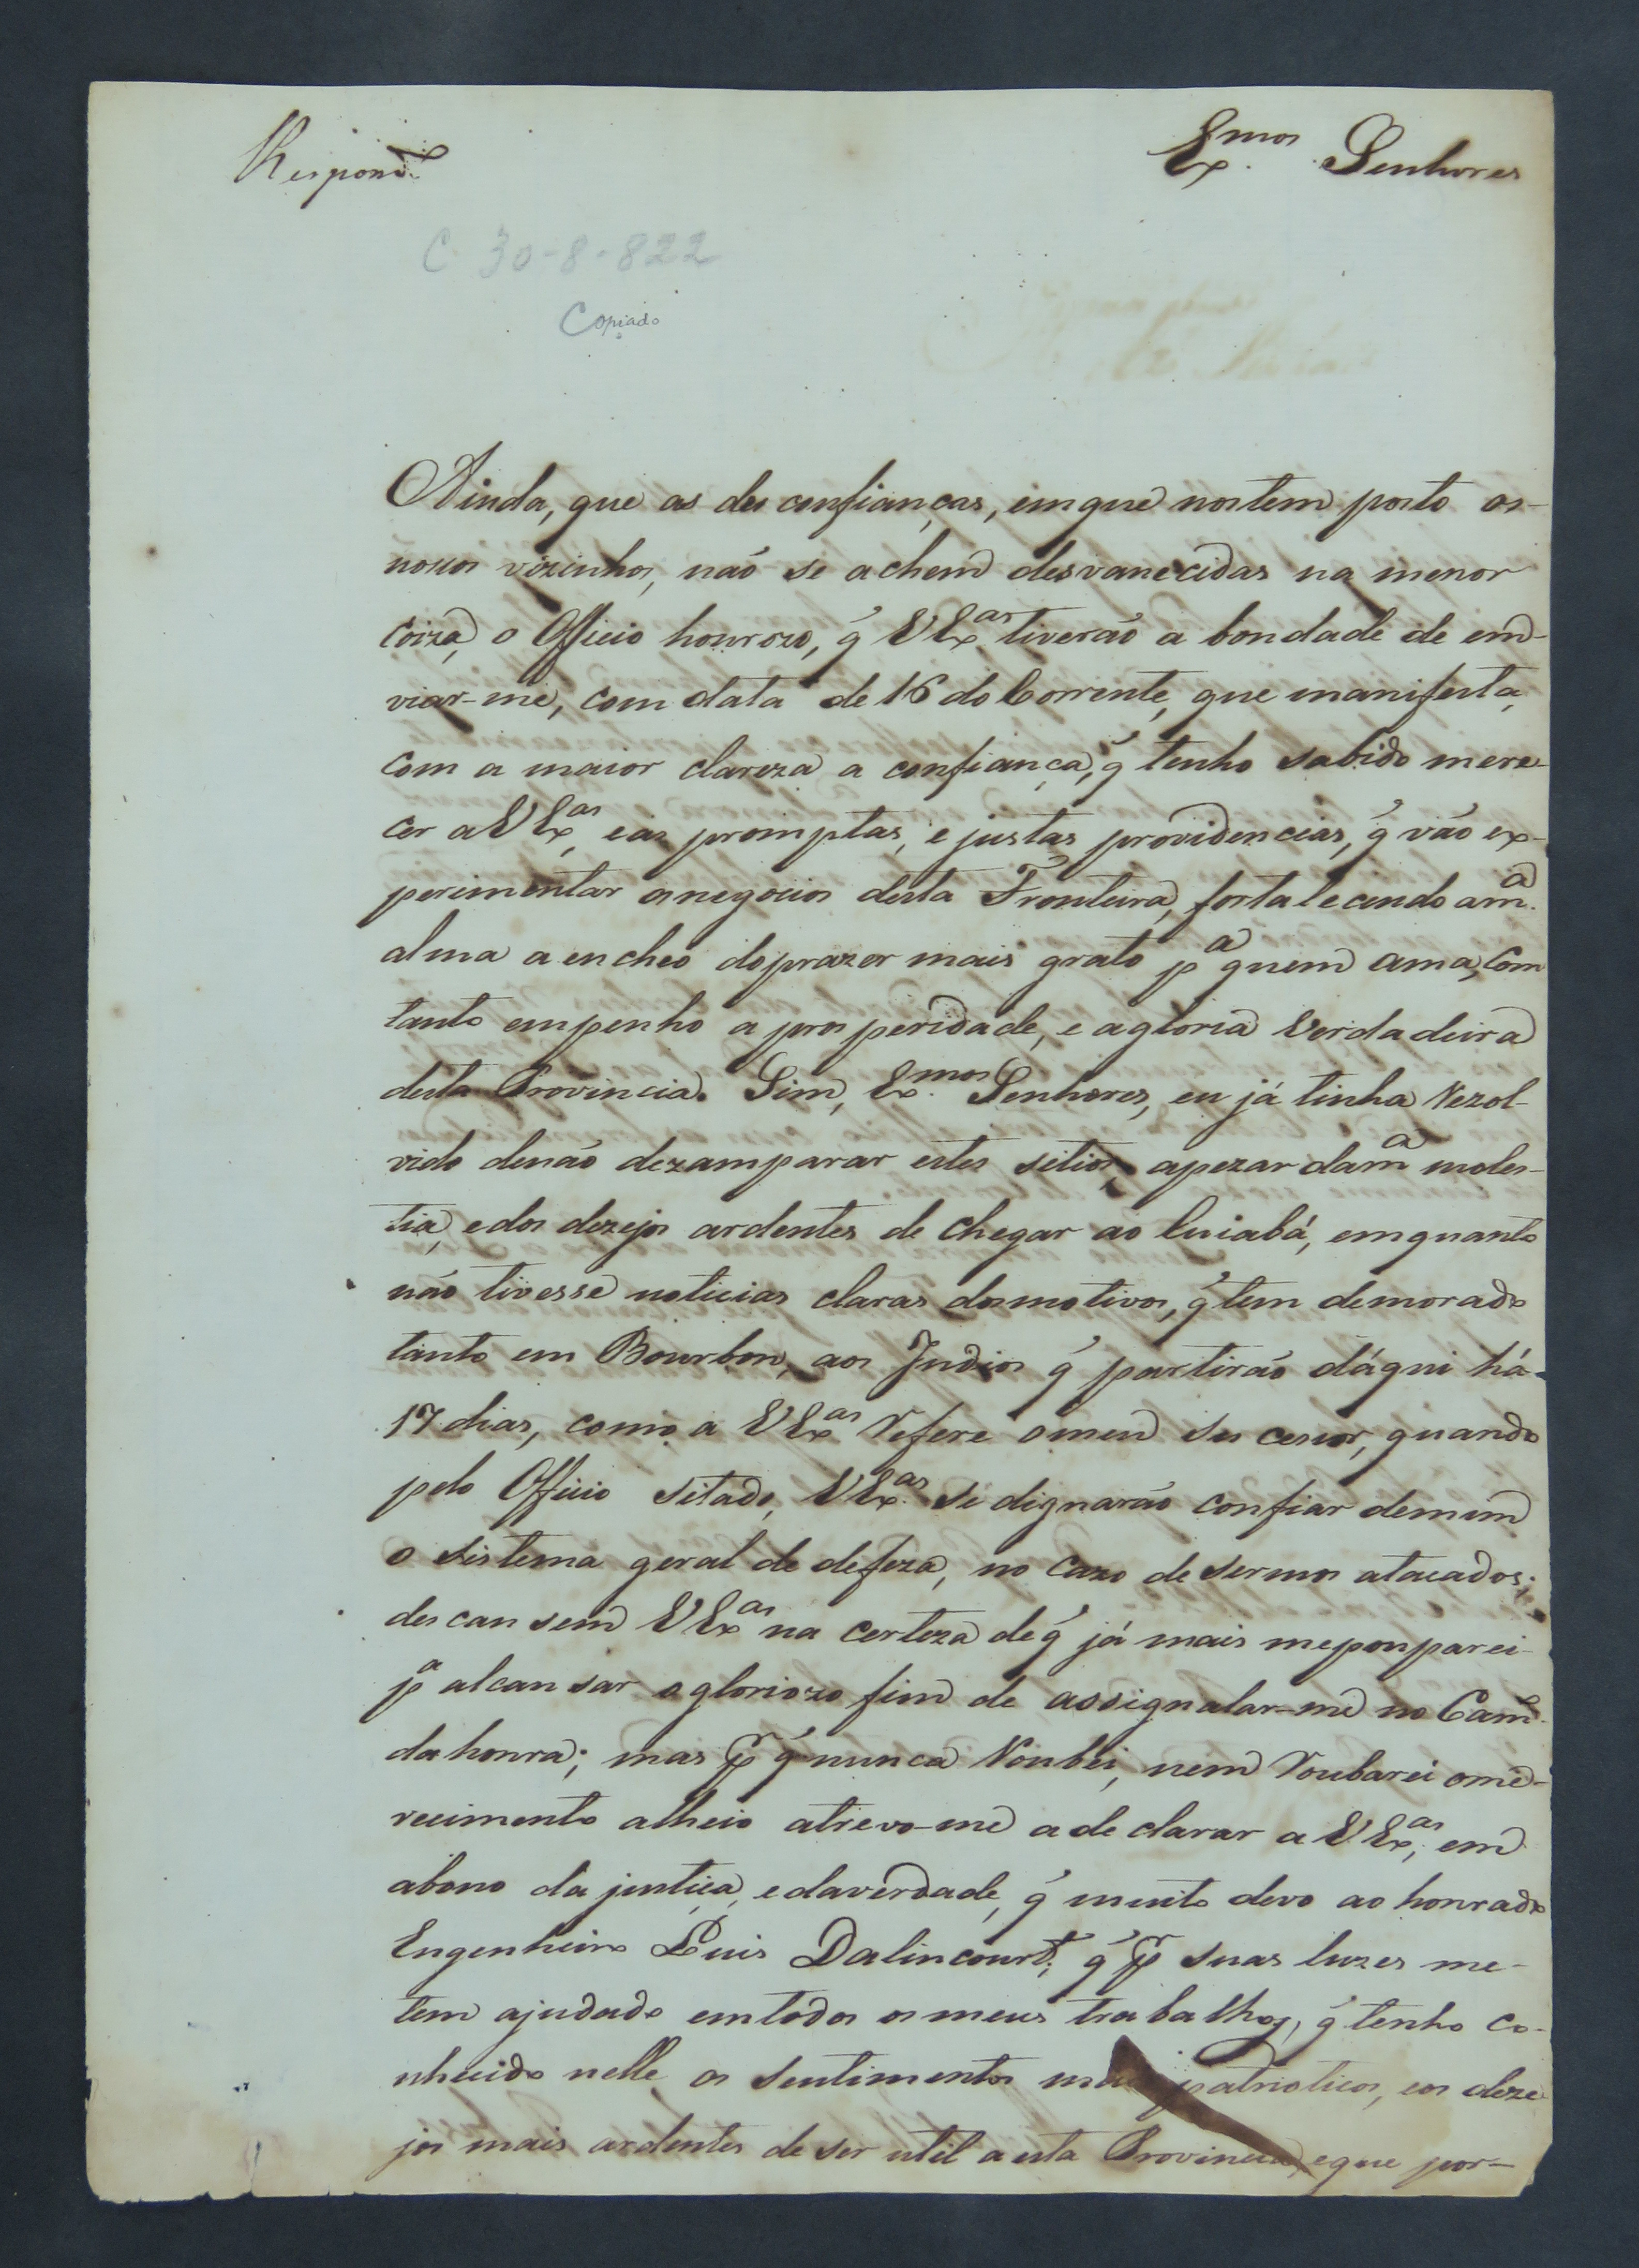 Respond.º
Ex.mos Senhores
C 30-8-822
Copiado
Ainda, que as des confianças, em que nos tem posto os
nossos vizinhos, não se achem desvanecidas na menor
coiza, o Officio honrozo, q́ VVEx.as tiverão a bondade de em-
viar-me, com data de 16 do Corrente, que manifesta,
com a maior clareza a confiança, q́ tenho sabido mere-
cer a VEx.as, e as promptas, e justas providencias, q́ vão ex-
perimentar os negocios desta Fronteira, fortalecendo a m.a
alma a encheo do prazer mais grato p.a quem ama, com
tanto empenho a prosperidade, e a gloria verdadeira
desta Provincia. Sim, Ex.mos Senhores, eu já tinha rezol-
vido de não dezamparar estes sitios, apezar da m.a moles-
tia, e dos dezejos ardentes de chegar ao Cuiabá, emquanto
não tivesse noticias claras dos motivos, q́ tem demorado
tanto em Bourbon, aos Indios q́ partirão d'áqui há
17 dias, como a VEx.as refere o meu sucessor, quando
pelo Officio sitado, VEx.as se dignarão confiar de mim
o sistema geral de defeza, no cazo de sermos atacados;
des cansem VEx.as na certeza de q́ já mais me ponparei
p.a alcansar o gloriozo fim de assignalar-me no Cam.º
da honra; mas p.r q́ nunca roubei, nem roubarei o me-
recimento alheio atrevo-me a declarar a VEx.as, em
abono da justiça, e da verdade, q́ muito devo ao honrado
Engenheiro Luis Dalincourt; q́ p.r suas luzes me
tem ajudado em todos os meus trabalhos, q́ tenho co-
nhecido nelle os sentimentos mais patrioticos, e os deze-
jos mais ardentes de ser util a esta Provincia, e que por-